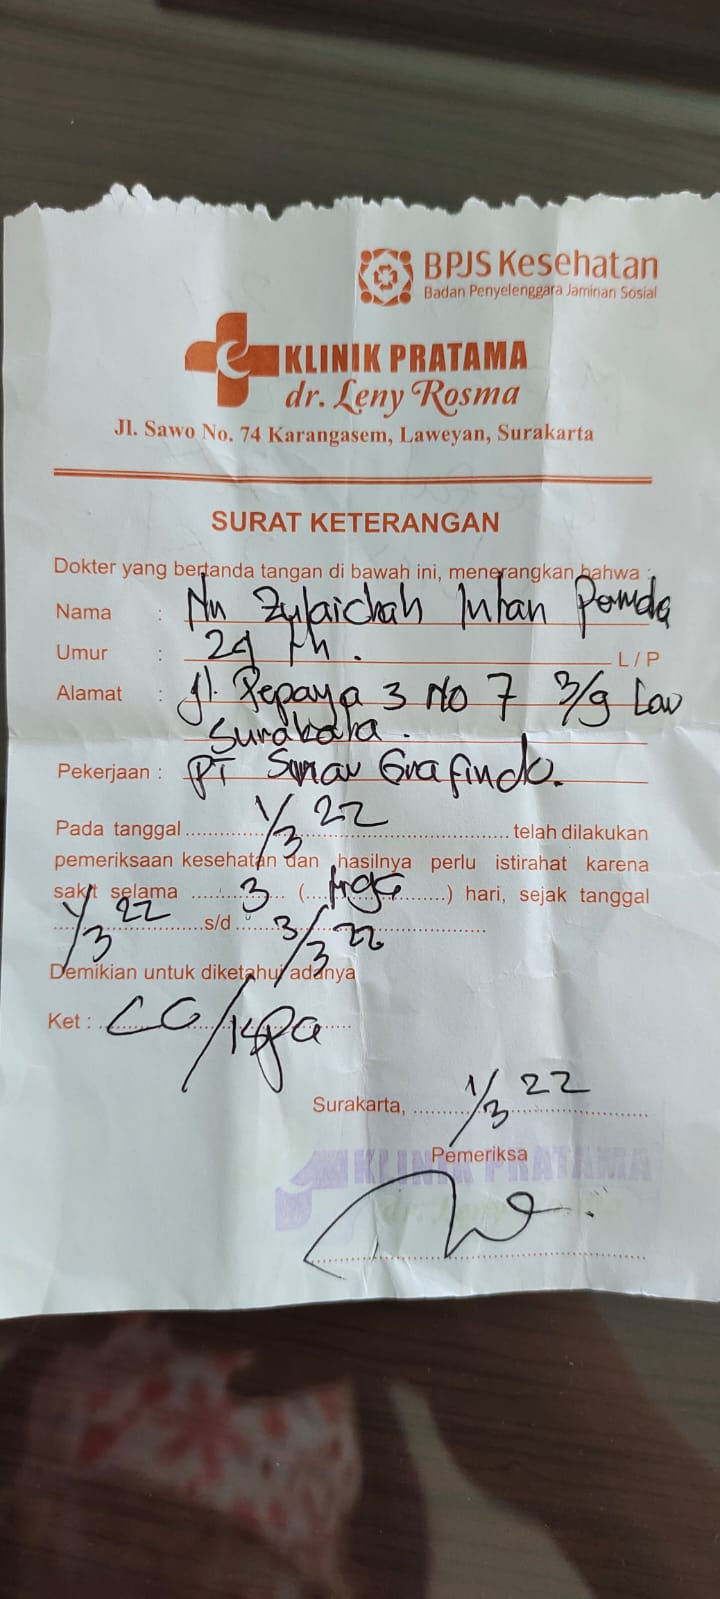 BPJS Kesehatan
Badan Penyelenggara Jaminan Sosial
KLINIK PRATAMA
dr. Leny Rosma
Jl. Sawo No. 74 Karangasem, Laweyan, Surakarta
SURAT KETERANGAN
Dokter yang bertanda tangan di bawah ini, menerangkan bahwa :
Nama : Nn Zulaichah Intan
Umur : 29 th. L / P
Alamat : Jl. Pepaya 3 No 7 3/9 Law
Surakarta.
Pekerjaan : PT Sinar Grafindo.
Pada tanggal 1/3 22 telah dilakukan
pemeriksaan kesehatan dan hasilnya perlu istirahat karena
sakit selama 3 (tiga) hari, sejak tanggal
1/3 22 s/d 3/3 22
Demikian untuk diketahui adanya
Ket :
Surakarta, 1/3 22
Pemeriksa
KLINIK PRATAMA